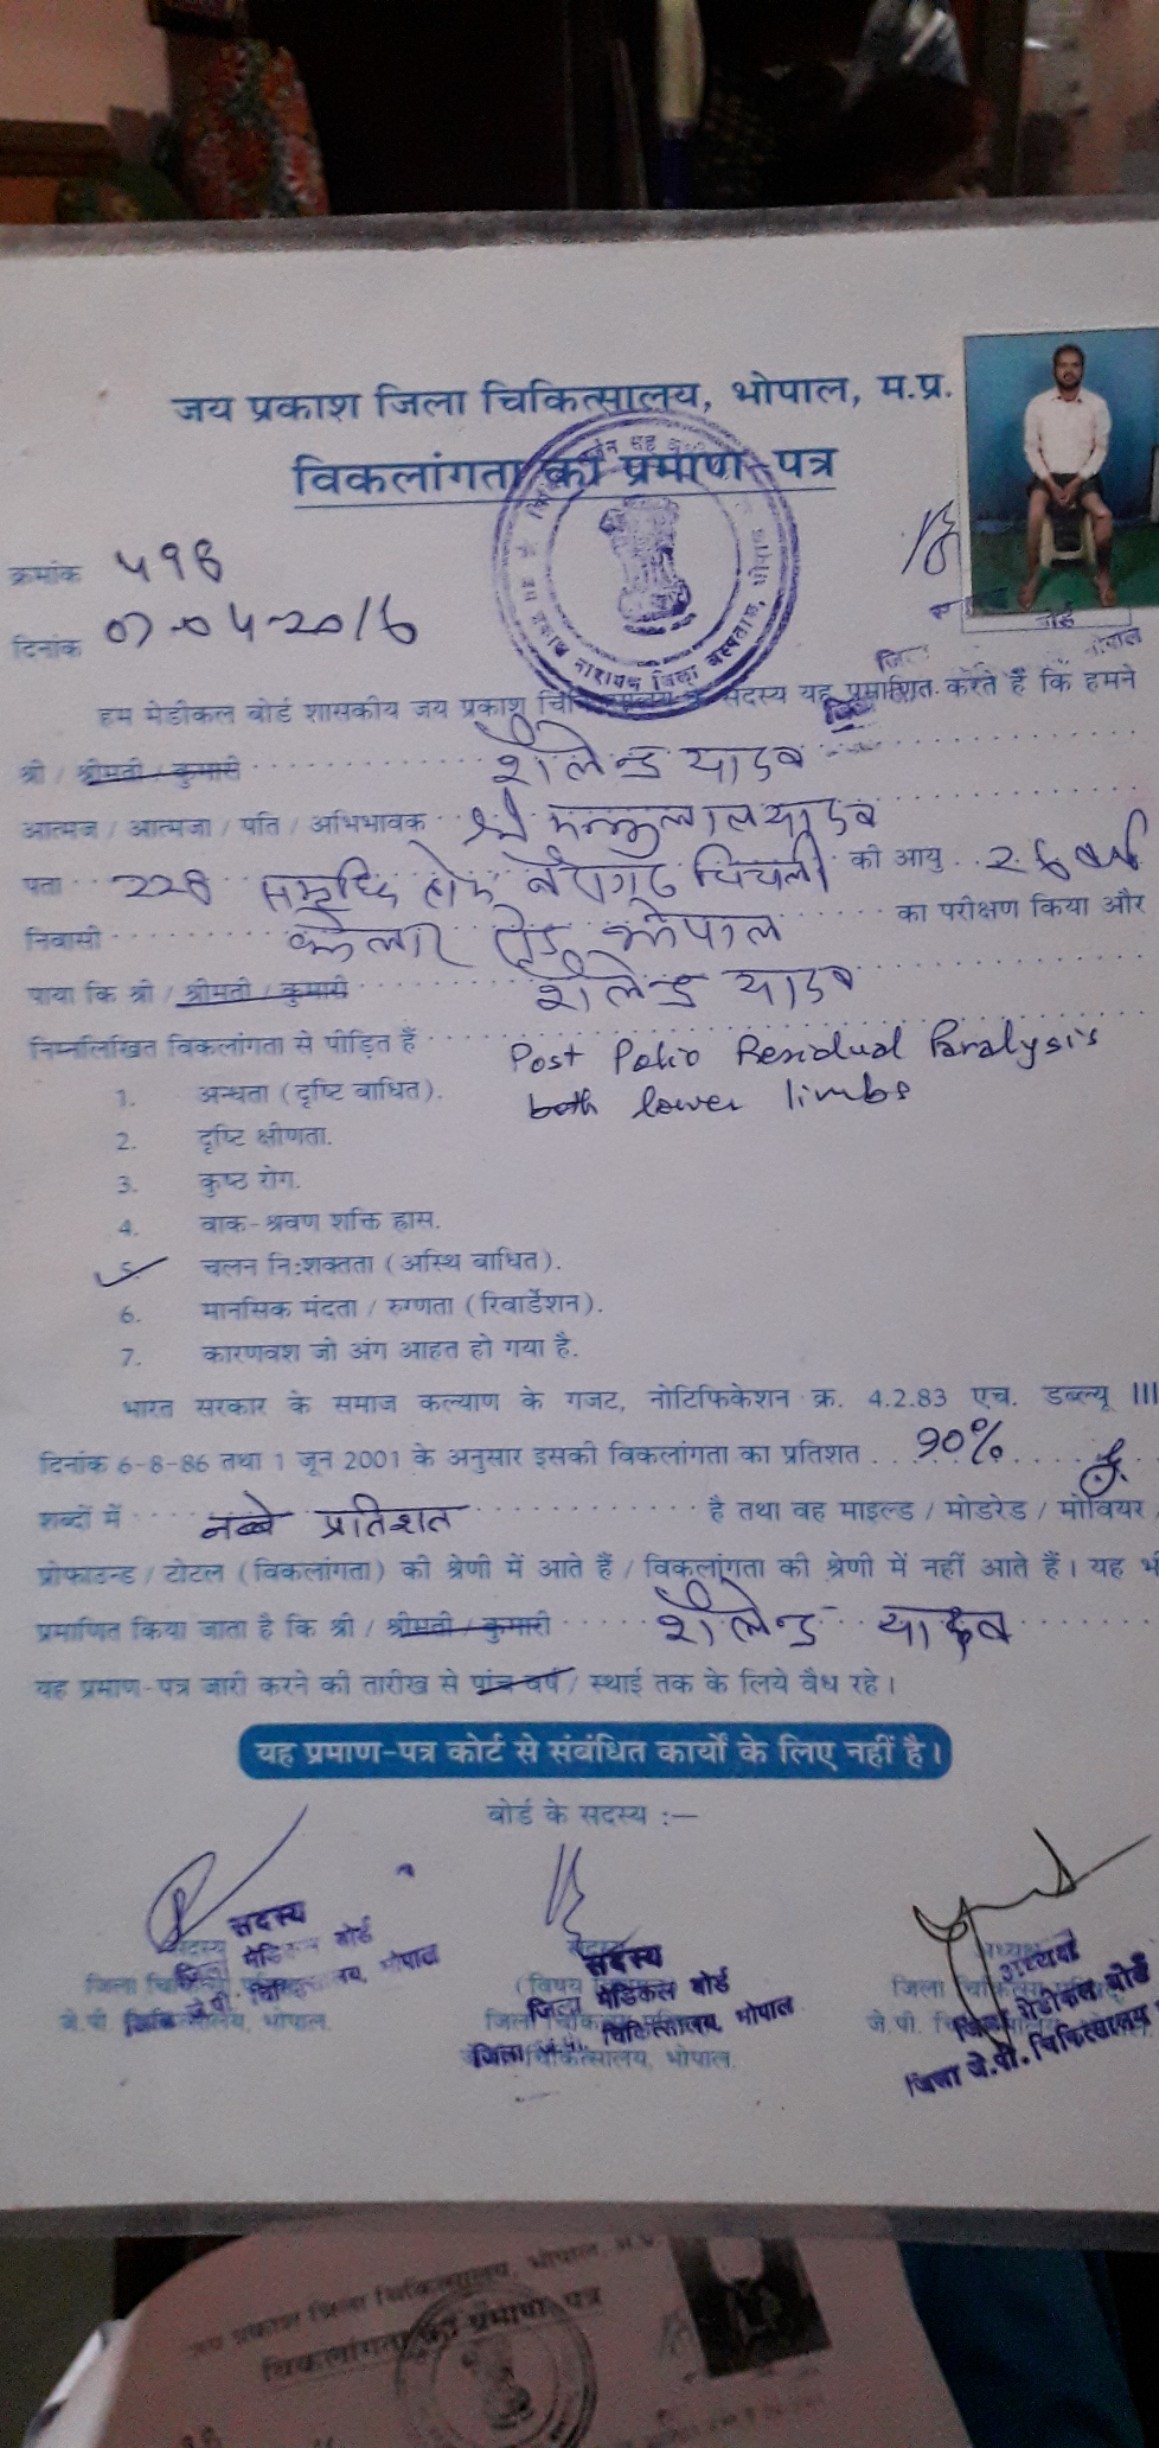 जय प्रकाश जिला चिकित्सालय, भोपाल, म.प्र.
विकलांगता का प्रमाण-पत्र
क्रमांक 498
दिनांक 07-04-2016
हम मेडीकल बोर्ड शासकीय जय प्रकाश सदस्य यह प्रमाणित करते हैं कि हमने
श्री / श्रीमती / कुमारी शैलेन्द्र यादव
आत्मज / आत्मजा / पति / अभिभावक श्री यादव
पता 228 समृद्धि चिचली की आयु 26 वर्ष
निवासी कोलार रोड भोपाल का परीक्षण किया और
पाया कि श्री / श्रीमती / कुमारी शैलेन्द्र यादव
निम्नलिखित विकलांगता से पीड़ित हैं Post Polio Residual Paralysis
both lower limbs
1. अन्धता (दृष्टि बाधित).
2. दृष्टि क्षीणता.
3. कुष्ठ रोग.
4. वाक-श्रवण शक्ति ह्रास.
5. चलन नि:शक्तता (अस्थि बाधित).
6. मानसिक मंदता / रुग्णता (रिवार्डेशन).
7. कारणवश जो अंग आहत हो गया है.
भारत सरकार के समाज कल्याण के गजट, नोटिफिकेशन क्र. 4.2.83 एच. डब्ल्यू III
दिनांक 6-8-86 तथा 1 जून 2001 के अनुसार इसकी विकलांगता का प्रतिशत 90%
शब्दों में नब्बे प्रतिशत है तथा वह माइल्ड / मोडरेड / मोवियर
प्रोफाउन्ड / टोटल (विकलांगता) की श्रेणी में आते हैं / विकलांगता की श्रेणी में नहीं आते हैं। यह
प्रमाणित किया जाता है कि श्री / श्रीमती / कुमारी शैलेन्द्र यादव
यह प्रमाण-पत्र जारी करने की तारीख से पांच वर्ष / स्थाई तक के लिये वैध रहे।
यह प्रमाण-पत्र कोर्ट से संबंधित कार्यों के लिए नहीं है।
बोर्ड के सदस्य :—
सदस्य
मेडिकल बोर्ड
भोपाल
जे.पी. भोपाल.
सदस्य
जिला मेडिकल बोर्ड
जिला चिकित्सालय, भोपाल
चिकित्सालय, भोपाल.
अध्यक्ष
मेडीकल बोर्ड
जिला जे.पी. चिकित्सालय
जय प्रकाश जिला चिकित्सालय, भोपाल, म.प्र.
विकलांगता का प्रमाण-पत्र